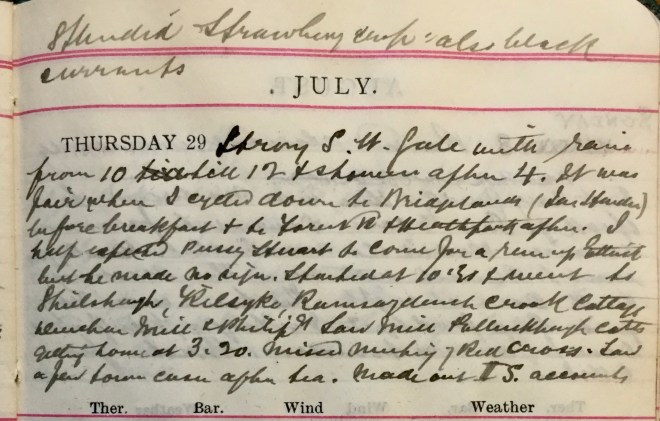 Splendid Strawberry crop: also black
currants
JULY.
THURSDAY 29 Strong S. W. Gale with rain
from 10 till 12 & showers after 4. It was
fair when I cycled down to Bridgelands
before breakfast & to Forest R & Heathpark after. I
half expected Percy Stuart to come for a run up Ettrick
but he made no sign. Started at 10 & went to
Shielshaugh, Kilsyke, Ramseycleuch Crook Cottage
Mill & Philip Saw Mill cotts
getting home at 3.20. missed meeting of Red Cross. Saw
a few town cases after tea. Made out S. accounts
Ther. Bar. Wind Weather